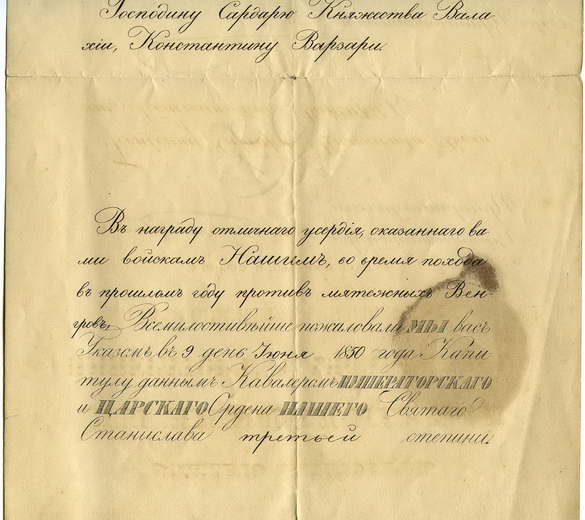 Господину Сардарю Княжества Вала
хіи, Константину Варзари.
Въ награду отличнаго усердія, оказаннаго ва
ми войскамъ Нашимъ, во время похода
въ прошломъ году противъ мятежныхъ Вен-
гровъ, Всемилостивѣйше пожаловали МЫ васъ
Указомъ въ 9 день Іюня 1850 года Капи
тулу даннымъ Кавалеромъ ИМПЕРАТОРСКАГО
и ЦАРСКАГО Ордена НАШЕГО Святаго
Станислава третьей степини.